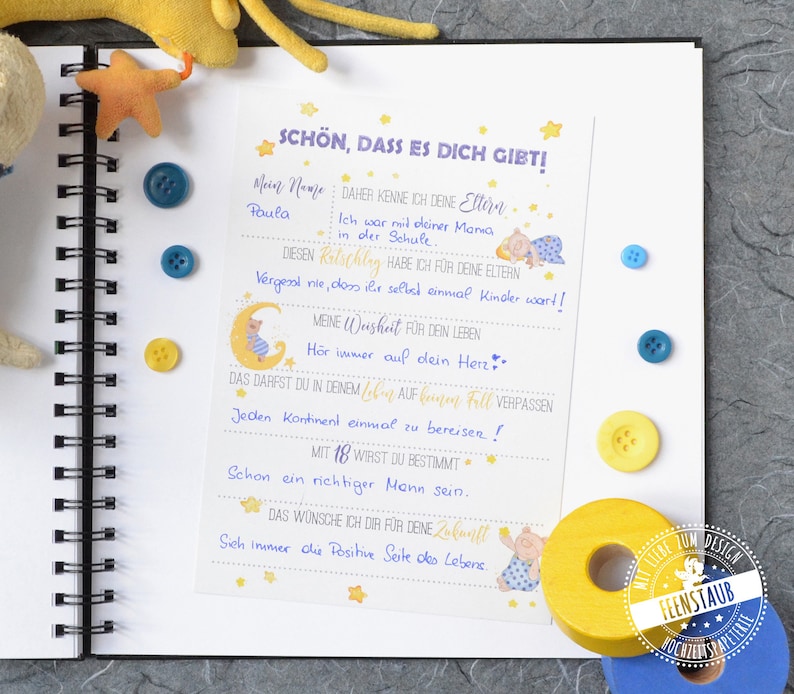 SCHÖN, DASS ES DICH GIBT!
Mein Name
Paula
DAHER KENNE ICH DEINE Eltern
Ich war mit deiner Mama
in der Schule.
DIESEN Ratschlag HABE ICH FÜR DEINE ELTERN
Vergesst nie, dass ihr selbst einmal Kinder wart!
MEINE Weisheit FÜR DEIN LEBEN
Hör immer auf dein Herz!
DAS DARFST DU IN DEINEM Leben AUF keinen Fall VERPASSEN
Jeden Kontinent einmal zu bereisen!
MIT 18 WIRST DU BESTIMMT
Schon ein richtiger Mann sein.
DAS WÜNSCHE ICH DIR FÜR DEINE Zukunft
Sieh immer die Positive Seite des Lebens.
MIT LIEBE ZUM DESIGN
FEENSTAUB
HOCHZEITSPAPETERIE